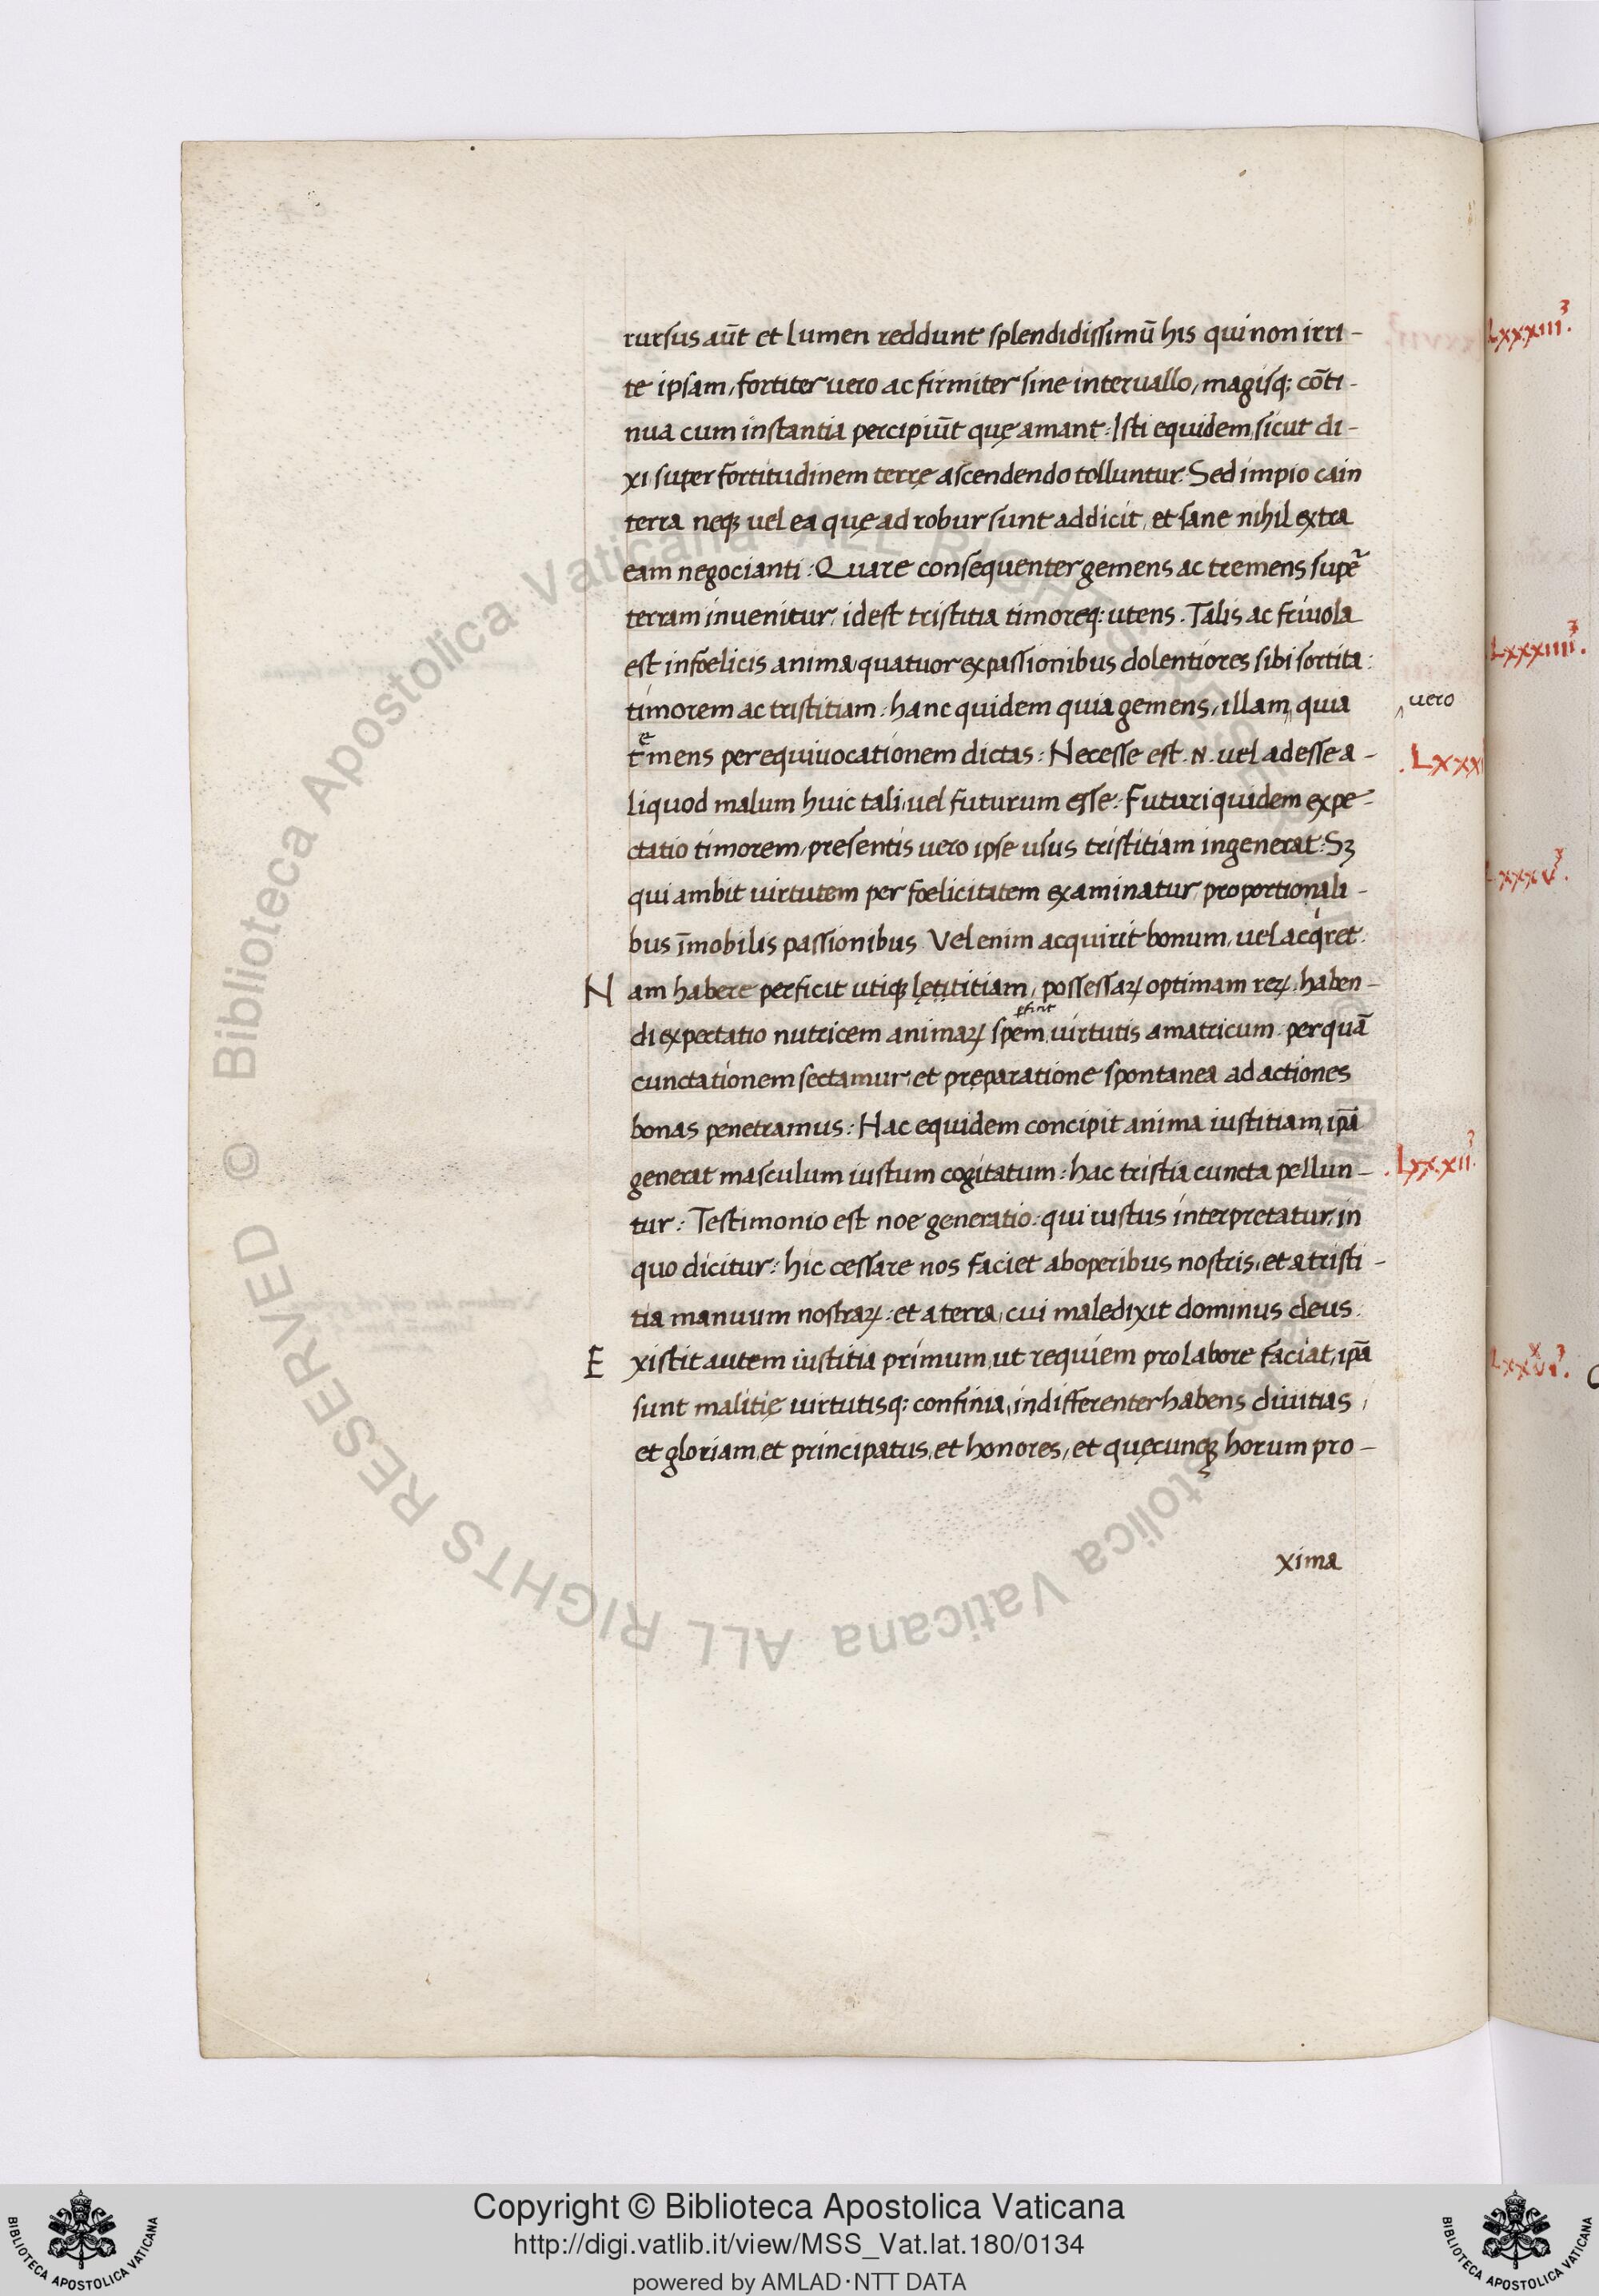 rursus aūt et lumen reddunt splendidissimū his qui non irri-
te ipsam, fortiter uero ac firmiter sine interuallo, magisq; cōti-
nua cum instantia percipiūt quę amant: Isti equidem sicut di-
xi super fortitudinem terrę ascendendo tolluntur. Sed impio cain
terra neq; uel ea quę ad robur sunt addicit, et sane nihil extra
eam negocianti: Quare consequenter gemens ac tremens supē
terram inuenitur, idest tristitia timoreq; utens. Talis ac friuola
est infoelicis anima, quatuor ex passionibus dolentiores sibi sortita:
timorem ac tristitiam: hanc quidem quia gemens, illam, quia
uero
tēmens per equiuocationem dictas: Necesse est .N. uel adesse a-
liquod malum huic tali, uel futurum esse: Futuri quidem expe-
ctatio timorem, presentis uero ipse usus tristitiam ingenerat: Sꝫ
qui ambit uirtutem per foelicitatem examinatur proportionali-
bus īmobilis passionibus Vel enim acquirit bonum, uel acq̓ret:
Nam habere perficit utiq; lętititiam, possessaꝝ optimam reꝝ: haben-
efficit
di expectatio nutricem animaꝝ spem, uirtutis amatricum. per quā
cunctationem sectamur, et pręparatione spontanea ad actiones
bonas penetramus: Hac equidem concipit anima iustitiam, ip̄a
generat masculum iustum cogitatum: hac tristia cuncta pellun-
tur: Testimonio est noe generatio: qui iustus interpretatur, in
quo dicitur: hic cessare nos faciet ab operibus nostris, et a tristi-
tia manuum nostraꝝ: et a terra, cui maledixit dominus deus:
Existit autem iustitia primum, ut requiem pro labore faciat, ip̄a
sunt malitię uirtutisq; confinia, indifferenter habens diuitias,
et gloriam, et principatus, et honores, et quęcunq; horum pro-
xima
.Lxxx
.Lxxxii.
Lxxxiii³.
Lxxxiiii³.
Lxxxv³.
Lxxxvi³.
© Biblioteca Apostolica Vaticana ALL RIGHTS RESERVED © Biblioteca Apostolica Vaticana ALL RIGHTS RESERVED
BIBLIOTECA APOSTOLICA VATICANA
Copyright © Biblioteca Apostolica Vaticana
http://digi.vatlib.it/view/MSS_Vat.lat.180/0134
powered by AMLAD·NTT DATA
BIBLIOTECA APOSTOLICA VATICANA